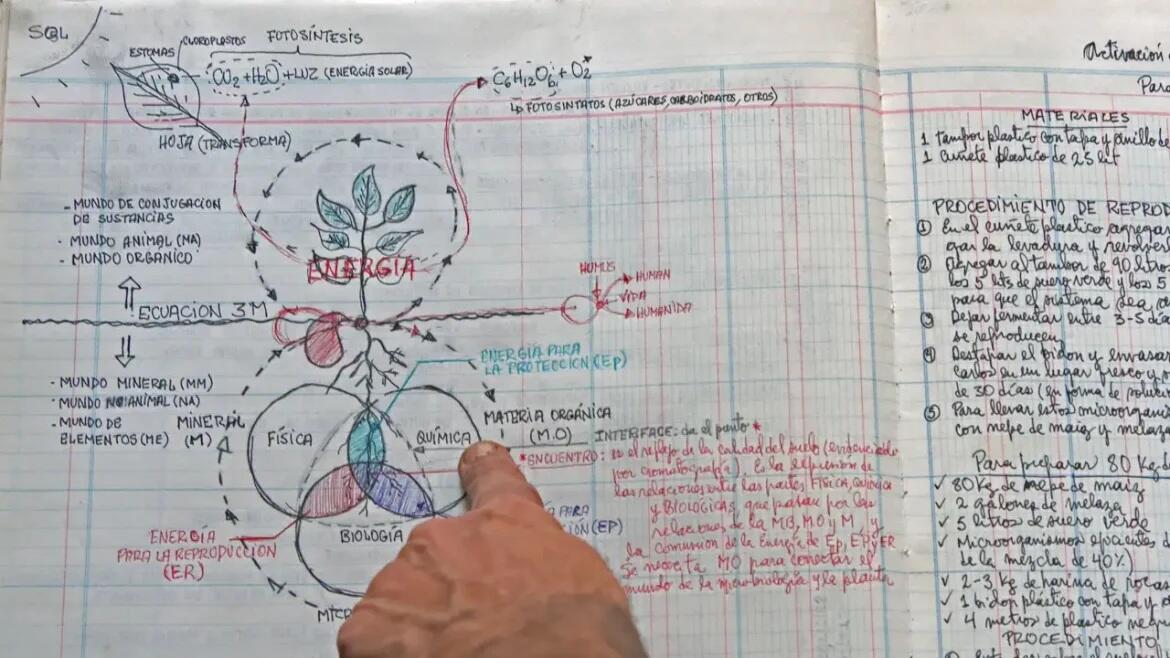 SOL
ESTOMAS
CLOROPLASTOS
FOTOSÍNTESIS
CO2 + H2O + LUZ (ENERGÍA SOLAR)
C6H12O6 + O2*
↳ FOTOSINTATOS (AZÚCARES, CARBOIDRATOS, OTROS)
HOJA (TRANSFORMA)
- MUNDO DE CONJUGACION
DE SUSTANCIAS
- MUNDO ANIMAL (MA)
- MUNDO ORGÁNICO
ENERGÍA
ECUACION 3M
HUMUS
HUMAN
VIDA
HUMANIDA
- MUNDO MINERAL (MM)
- MUNDO NO ANIMAL (NA)
- MUNDO DE
ELEMENTOS (ME)
MINERAL
(M)
ENERGÍA PARA
LA PROTECCION (EP)
MATERIA ORGÁNICA
(M.O)
FÍSICA
QUÍMICA
BIOLOGÍA
ENERGÍA
PARA LA REPRODUCCIÓN
(ER)
PARA
(EP)
INTERFACE: da el punto *
*ENCUENTRO: es el reflejo de la calidad del suelo (evidenciado
por cromatografía). Es la expresión de
las relaciones entre las partes FÍSICA, QUÍMICA
Y BIOLÓGICAS, que pasan por las
relaciones de la MB, MO y M, y
la comunion de la Energía de Ep, EP, ER
Se necesita MO para conectar el
mundo de la microbiología y la planta
Activación
Para
MATERIALES
1 Tambor plastico con tapa y anillo de
1 cuñete plastico de 25 lit
PROCEDIMIENTO DE REPROD
① En el cuñete plastico agregar
gar la levadura y revolver
② Agregar al tambor de 90 litros
los 5 lits de suero verde y los 5
para que el sistema sea
③ Dejar fermentar entre 3-5 día
se reproducen
④ Destapar el bidon y envasar
en un lugar fresco y
de 30 días (en forma de soluci
⑤ Para llevar estos microorgani
con nepe de maiz y melaza
Para preparar 80 Kg
✓ 80 Kg de nepe de maiz
✓ 2 galones de melaza
✓ 5 litros de suero verde
✓ Microorganismos eficientes d
de la mezcla de 40%)
✓ 2-3 kg de harina de rocas
✓ 1 bidon plástico con tapa y
✓ 4 metros de plastico neg
PROCEDIMIENTO